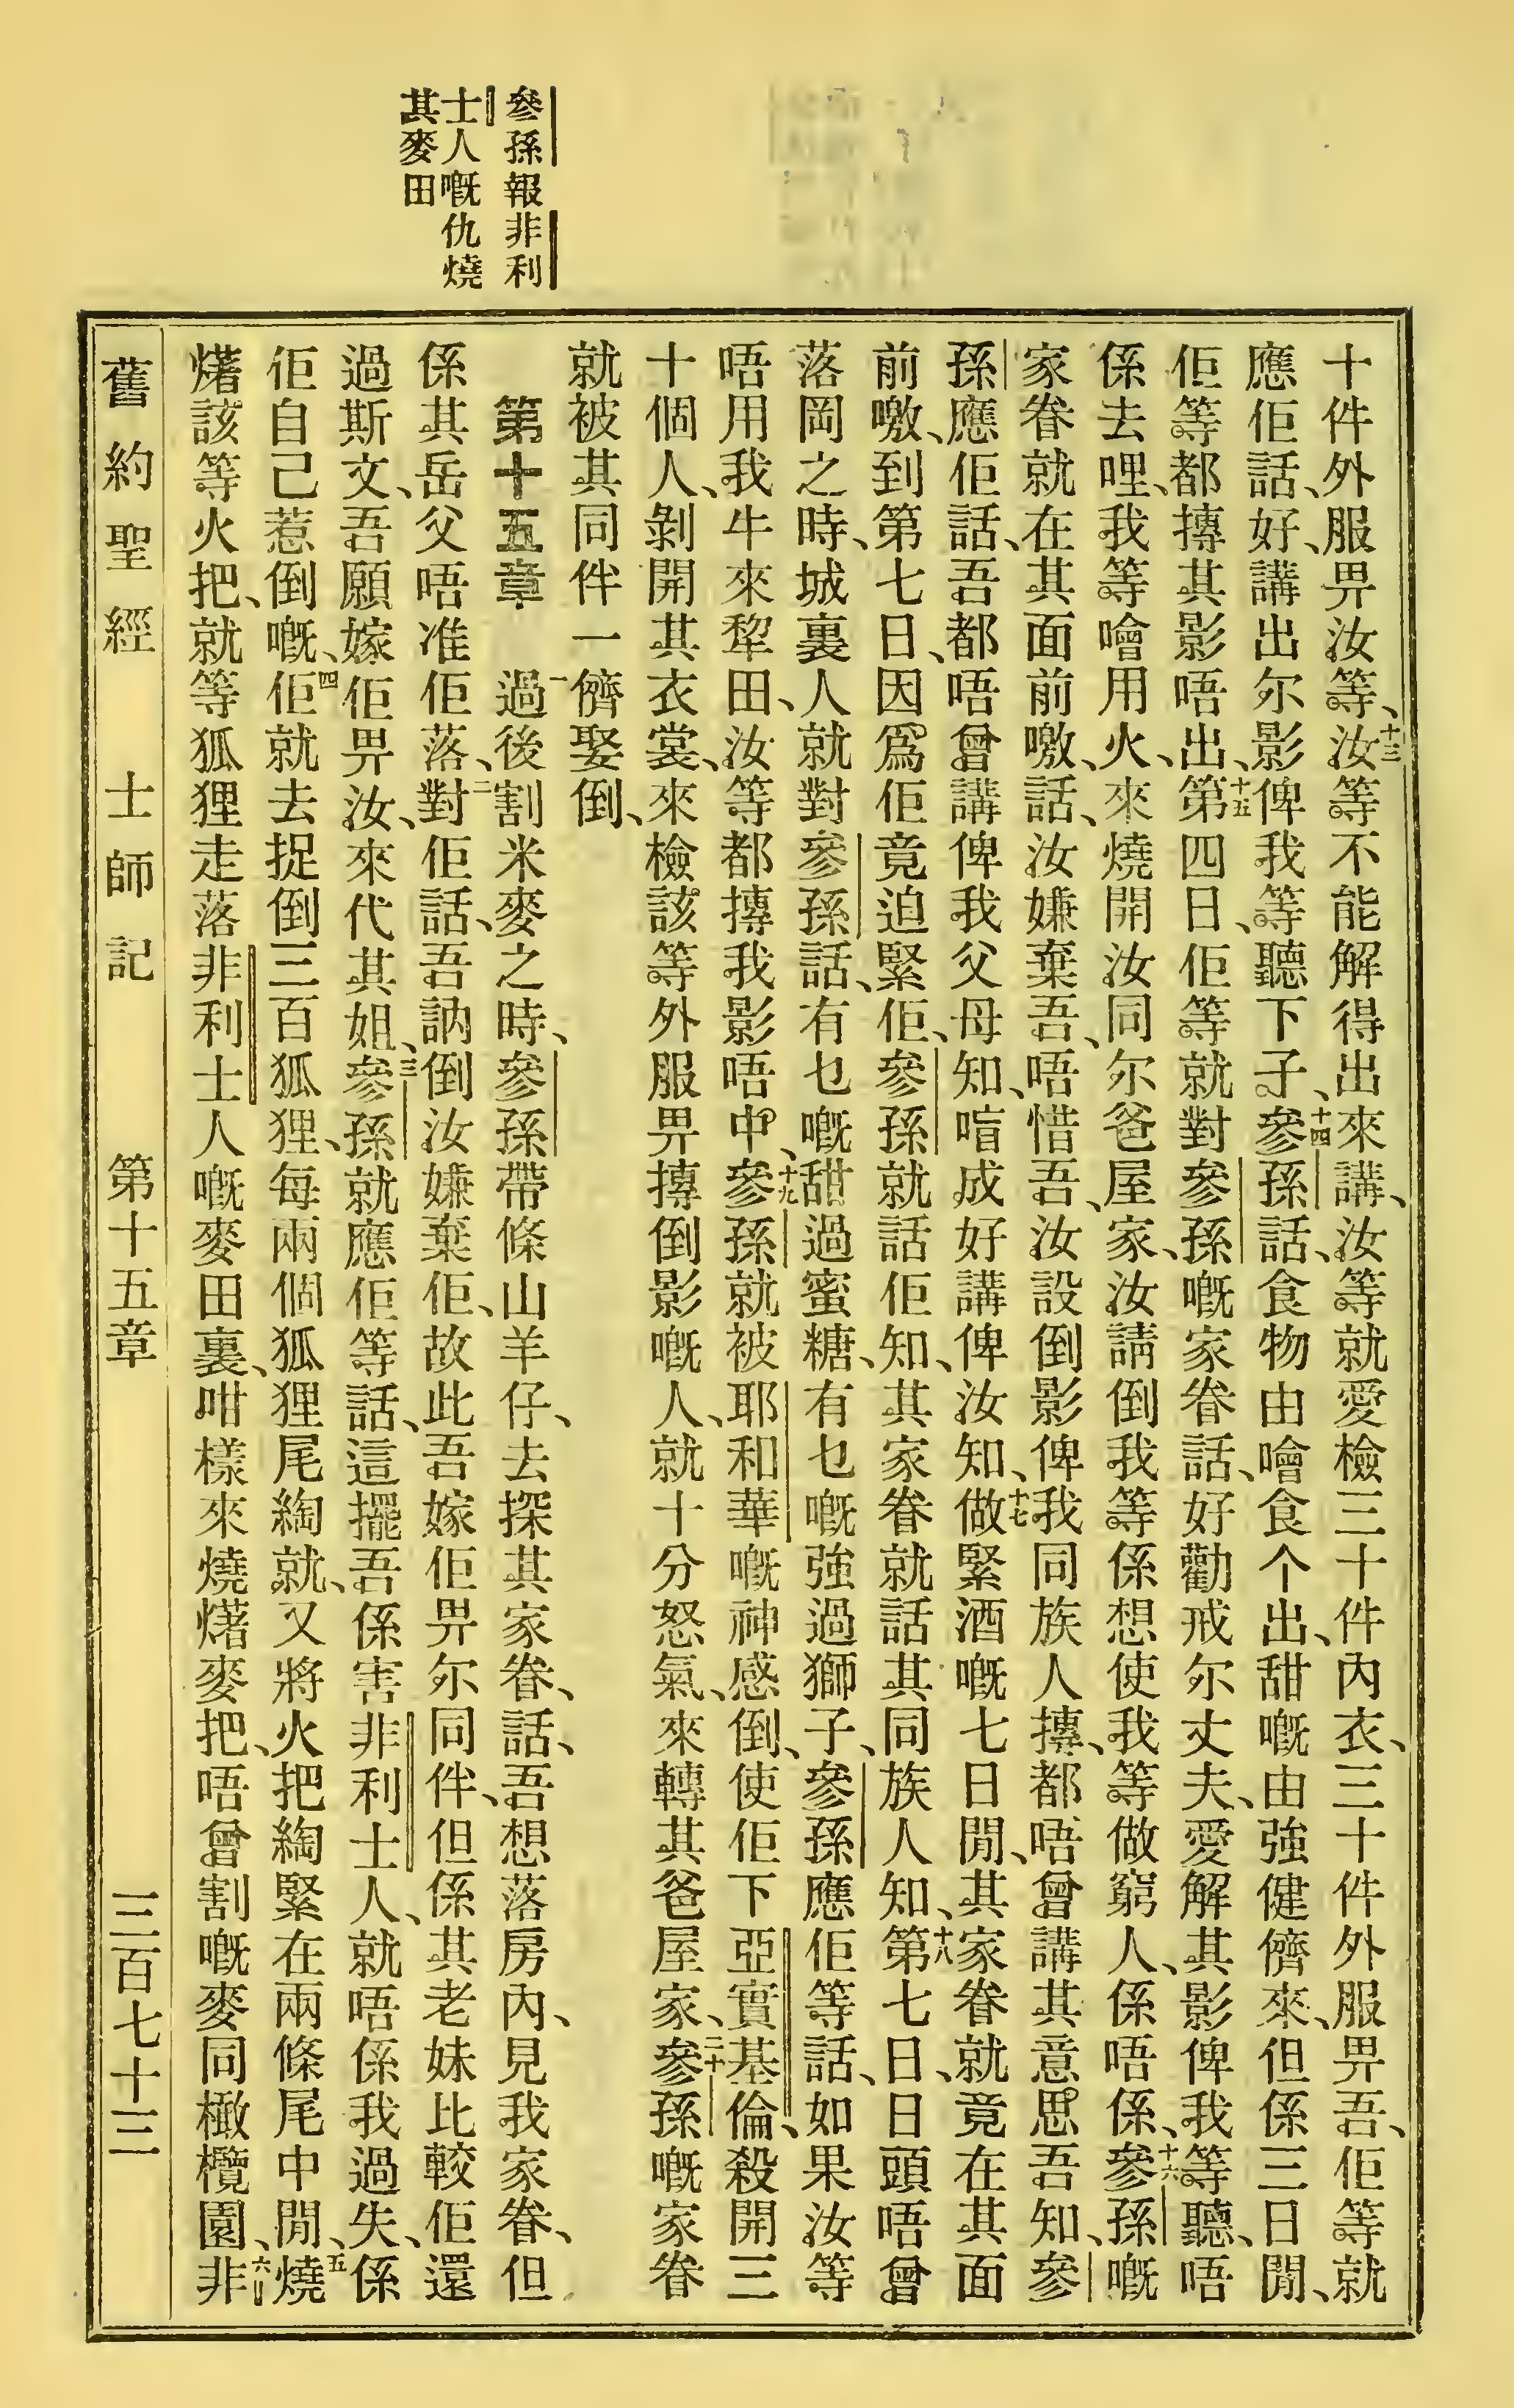 參孫報非利
士人嘅仇燒
其麥田
十件外服畀汝等、十三汝等不能解得出來講、汝等就愛檢三十件內衣、三十件外服畀吾、佢等就
應佢話、好、講出尔影俾我等聽下子、十四參孫話、食物由噲食个出、甜嘅由強健儕來、但係三日閒、
佢等都摶其影唔出、十五第四日、佢等就對參孫嘅家眷話、好勸戒尔丈夫、愛解其影俾我等聽、唔
係去哩、我等噲用火、來燒開汝同尔爸屋家、汝請倒我等係想使我等做窮人、係唔係、十六參孫嘅
家眷就在其面前噭、話、汝嫌棄吾、唔惜吾、汝設倒影俾我同族人摶、都唔曾講其意思吾知、參
孫應佢話、吾都唔曾講俾我父母知、喑成好講俾汝知、十七做緊酒嘅七日閒、其家眷就竟在其面
前噭、到第七日、因爲佢竟迫緊佢、參孫就話佢知、其家眷就話其同族人知、十八第七日、日頭唔曾
落岡之時、城裏人就對參孫話、有乜嘅甜過蜜糖、有乜嘅強過獅子、參孫應佢等話、如果汝等
唔用我牛來犂田、汝等都摶我影唔中、十九參孫就被耶和華嘅神感倒、使佢下亞實基倫、殺開三
十個人、剝開其衣裳、來檢該等外服畀摶倒影嘅人、就十分怒氣、來轉其爸屋家、二十參孫嘅家眷
就被其同伴一儕娶倒、
第十五章 一過後割米麥之時、參孫帶條山羊仔、去探其家眷、話、吾想落房內、見我家眷、但
係其岳父唔准佢落、二對佢話、吾訥倒汝嫌棄佢、故此吾嫁佢畀尔同伴、但係其老妹比較佢還
過斯文、吾願嫁佢畀汝、來代其姐、三參孫就應佢等話、這擺吾係害非利士人、就唔係我過失、係
佢自己惹倒嘅、四佢就去捉倒三百狐狸、每兩個狐狸尾綯就、又將火把綯緊在兩條尾中閒、五燒
㷮該等火把、就等狐狸走落非利士人嘅麥田裏、咁樣來燒㷮麥把、唔曾割嘅麥同橄欖園、六非
舊約聖經 士師記 第十五章 三百七十三